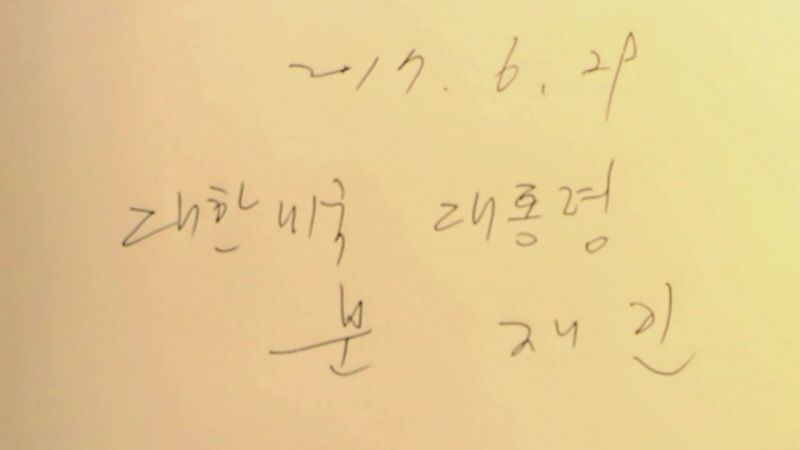 2017. 6. 28
대한미국 대통령
문 재 인